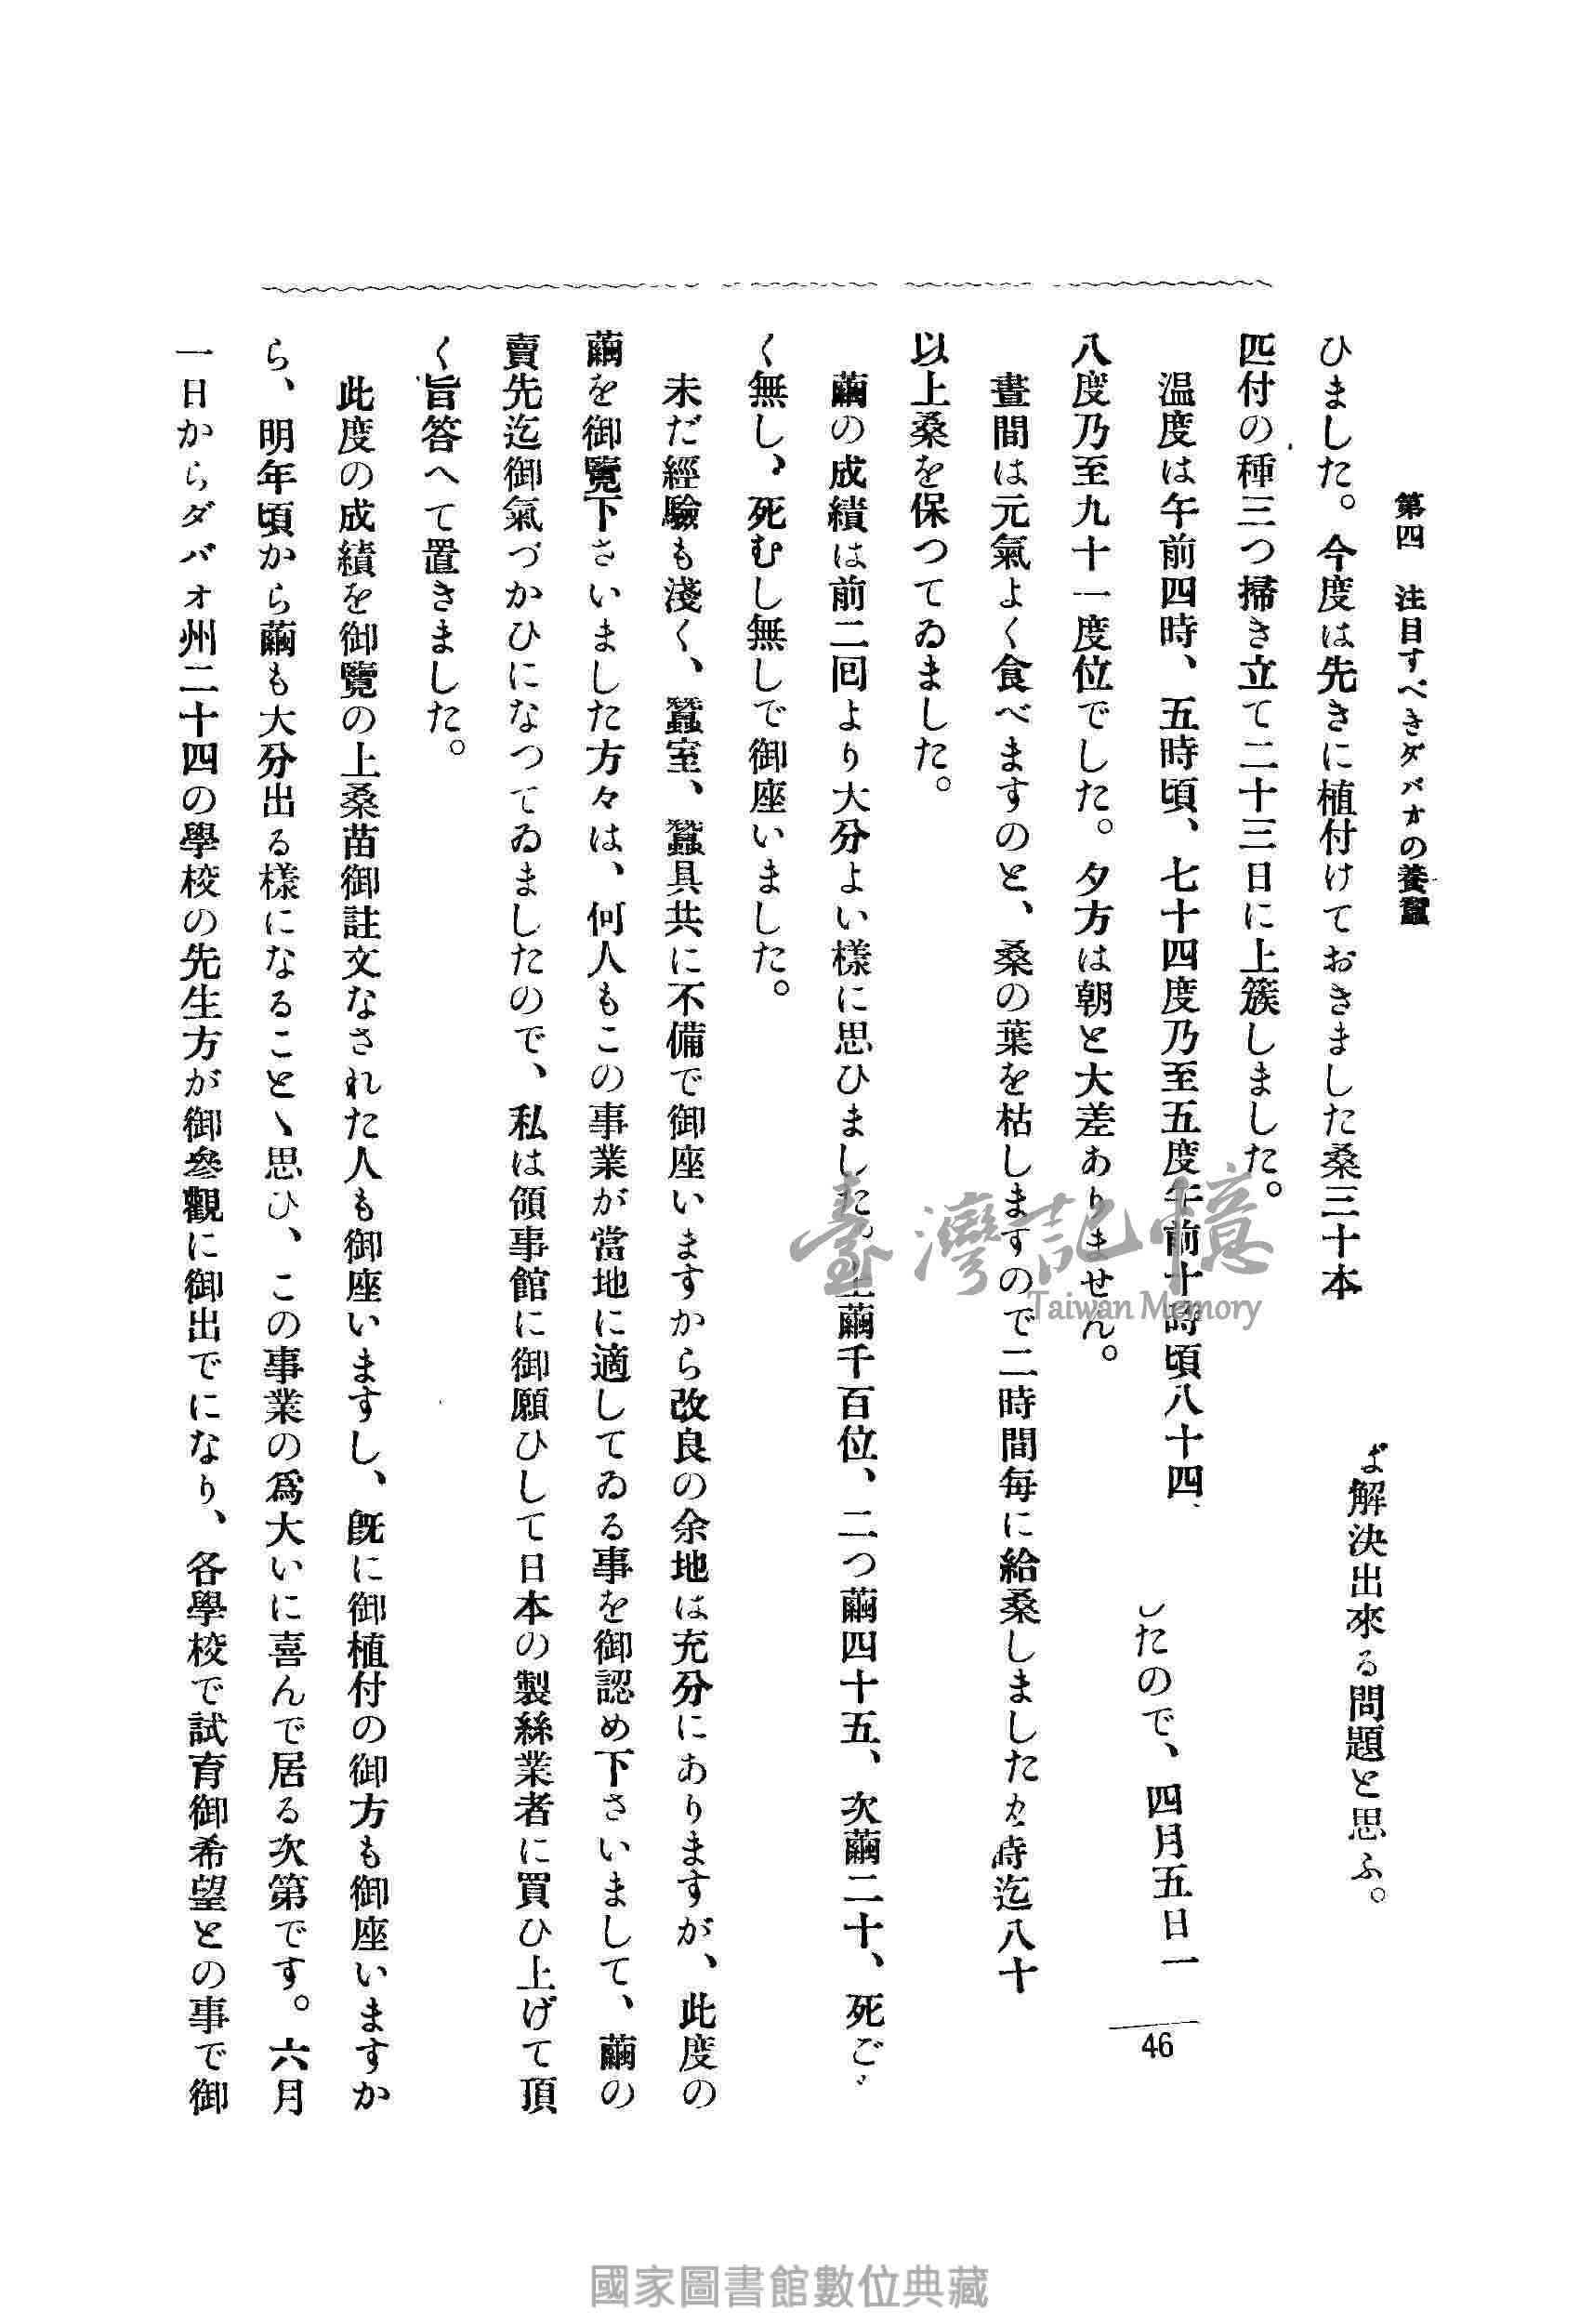 第四　注目すべきダバオの養蠶
ひました。今度は先きに植付けておきました桑三十本
ば解決出來る問題と思ふ。
匹付の種三つ掃き立て二十三日に上簇しました。
温度は午前四時、五時頃、七十四度乃至五度午前十時頃八十四、
したので、四月五日一
八度乃至九十一度位でした。夕方は朝と大差ありません。
晝間は元氣よく食べますのと、桑の葉を枯しますので二時間毎に給桑しました
時迄八十
以上桑を保つてゐました。
繭の成績は前二回より大分よい樣に思ひました。上繭千百位、二つ繭四十五、次繭二十、死ご
く無し、死むし無しで御座いました。
未だ經驗も淺く、蠶室、蠶具共に不備で御座いますから改良の余地は充分にありますが、此度の
繭を御覽下さいました方々は、何人もこの事業が當地に適してゐる事を御認め下さいまして、繭の
賣先迄御氣づかひになつてゐましたので、私は領事館に御願ひして日本の製絲業者に買ひ上げて頂
く旨答へて置きました。
此度の成績を御覽の上桑苗御註文なされた人も御座いますし、既に御植付の御方も御座いますか
ら、明年頃から繭も大分出る樣になることゝ思ひ、この事業の爲大いに喜んで居る次第です。六月
一日からダバオ州二十四の學校の先生方が御參觀に御出でになり、各學校で試育御希望との事で御
46
臺灣記憶
Taiwan Memory
國家圖書館數位典藏